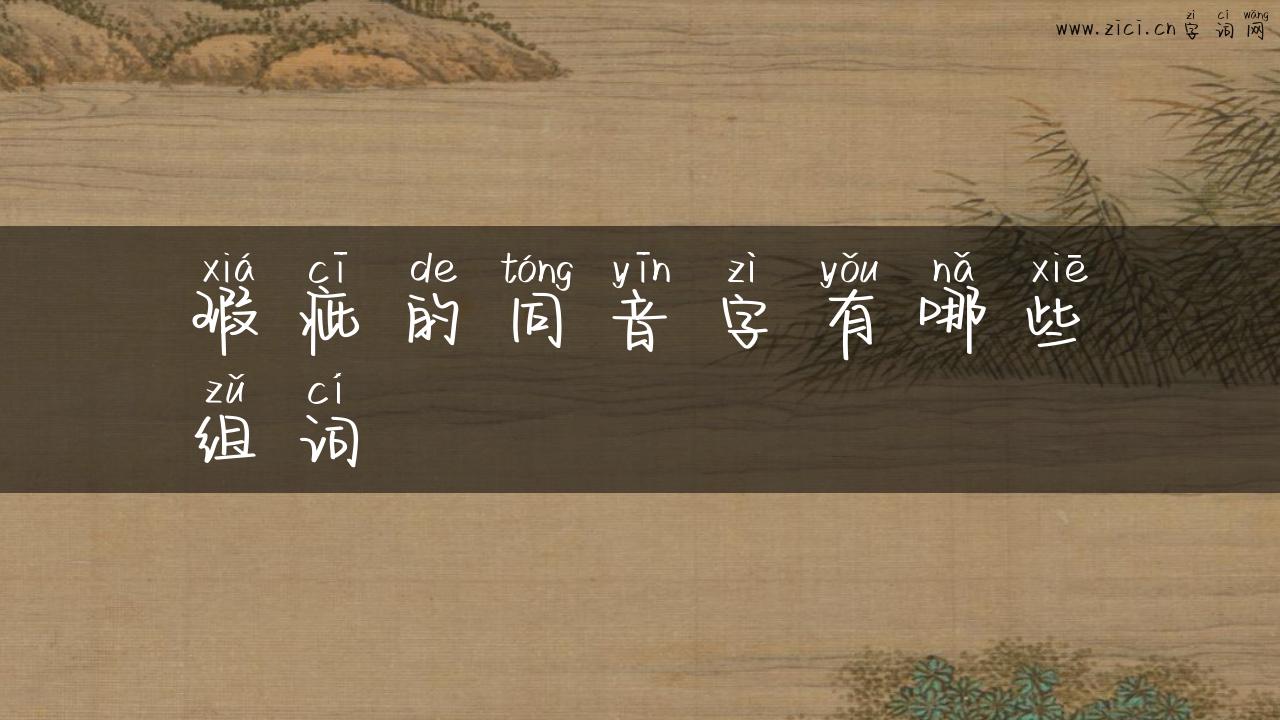 zì cí wǎng
www.zici.cn 字词网
xiá cī de tóng yīn zì yǒu nǎ xiē
瑕疵的同音字有哪些
zǔ cí
组词